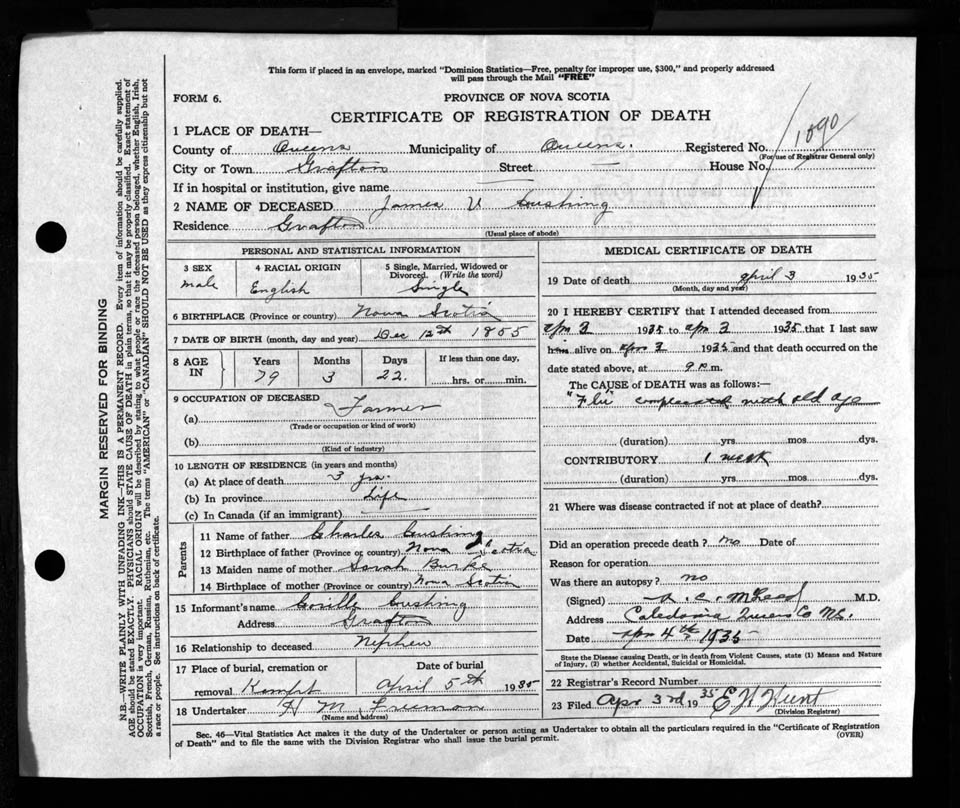 This form if placed in an envelope, marked "Dominion Statistics—Free, penalty for improper use, $300," and properly addressed
will pass through the Mail "FREE"
FORM 6.
PROVINCE OF NOVA SCOTIA
CERTIFICATE OF REGISTRATION OF DEATH
1 PLACE OF DEATH—
County of Queens Municipality of Queens. Registered No. 1090
(For use of Registrar General only)
City or Town Grafton Street — House No.
If in hospital or institution, give name
2 NAME OF DECEASED James U Cushing
Residence Grafton
(Usual place of abode)
MARGIN RESERVED FOR BINDING
N.B.—WRITE PLAINLY WITH UNFADING INK—THIS IS A PERMANENT RECORD. Every item of information should be carefully supplied.
AGE should be stated EXACTLY. PHYSICIANS should STATE CAUSE OF DEATH in plain terms, so that it may be properly classified. Exact statement of
OCCUPATION is very important. RACIAL ORIGIN will be described by stating to what people or race the deceased person belonged, whether English, Irish,
Scottish, French, German, Russian, Ruthenian, etc. The terms "AMERICAN" or "CANADIAN" SHOULD NOT BE USED as they express citizenship but not
a race or people. See instructions on back of certificate.
PERSONAL AND STATISTICAL INFORMATION
3 SEX
male
4 RACIAL ORIGIN
English
5 Single, Married, Widowed or
Divorced. (Write the word)
Single
6 BIRTHPLACE (Province or country) Nova Scotia
7 DATE OF BIRTH (month, day and year) Dec 12th 1855
8 AGE IN
Years Months Days If less than one day,
79 3 22. hrs. or min.
9 OCCUPATION OF DECEASED
(a) Farmer
(Trade or occupation or kind of work)
(b)
(Kind of industry)
10 LENGTH OF RESIDENCE (in years and months)
(a) At place of death 3 yrs.
(b) In province Life
(c) In Canada (if an immigrant)
Parents
11 Name of father Charles Cushing
12 Birthplace of father (Province or country) Nova Scotia
13 Maiden name of mother Sarah Burke
14 Birthplace of mother (Province or country) Nova Scotia
15 Informant's name Cushing
Address Grafton
16 Relationship to deceased Nephew
17 Place of burial, cremation or
removal Kempt
Date of burial
April 5th 1935
18 Undertaker H M Freeman
(Name and address)
MEDICAL CERTIFICATE OF DEATH
19 Date of death april 3 1935
(Month, day and year)
20 I HEREBY CERTIFY that I attended deceased from
apr 2 1935 to apr 2 1935 that I last saw
him alive on apr 2 1935 and that death occurred on the
date stated above, at 9 P.m.
The CAUSE of DEATH was as follows:—
"Flu" complicated with old age
(duration) yrs. mos. dys.
CONTRIBUTORY 1 week
(duration) yrs. mos. dys.
21 Where was disease contracted if not at place of death?
Did an operation precede death? no Date of
Reason for operation
Was there an autopsy? no
(Signed) M.D.
Address Caledonia Queens Co N.S.
Date apr 4th 1935
State the Disease causing Death, or in death from Violent Causes, state (1) Means and Nature
of Injury, (2) whether Accidental, Suicidal or Homicidal.
22 Registrar's Record Number
23 Filed Apr 3rd 1935 E H Hunt
(Division Registrar)
Sec. 46—Vital Statistics Act makes it the duty of the Undertaker or person acting as Undertaker to obtain all the particulars required in the "Certificate of Registration
of Death" and to file the same with the Division Registrar who shall issue the burial permit. (OVER)